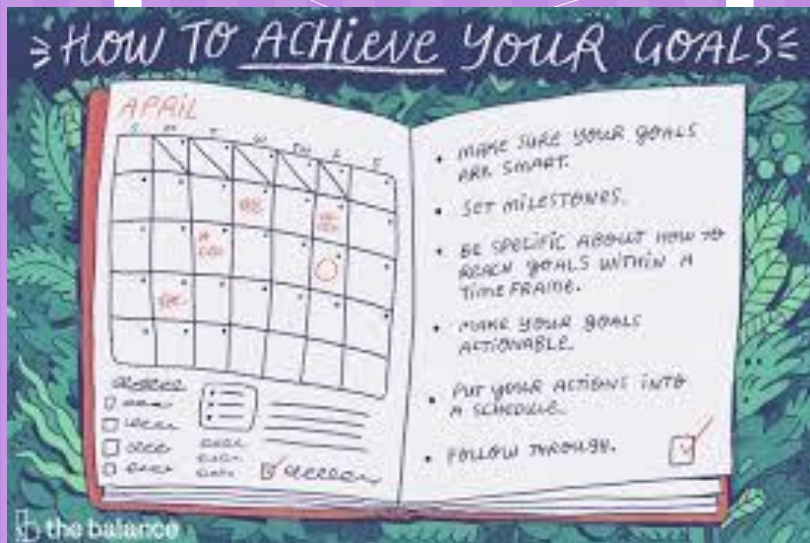 HOW TO ACHIEVE YOUR GOALS
APRIL
S M T W TH F S
• MAKE SURE YOUR GOALS
ARE SMART.
• SET MILESTONES.
• BE SPECIFIC ABOUT HOW TO
REACH GOALS WITHIN A
TIMEFRAME.
• MAKE YOUR GOALS
ACTIONABLE.
• PUT YOUR ACTIONS INTO
A SCHEDULE.
• FOLLOW THROUGH.
the balance